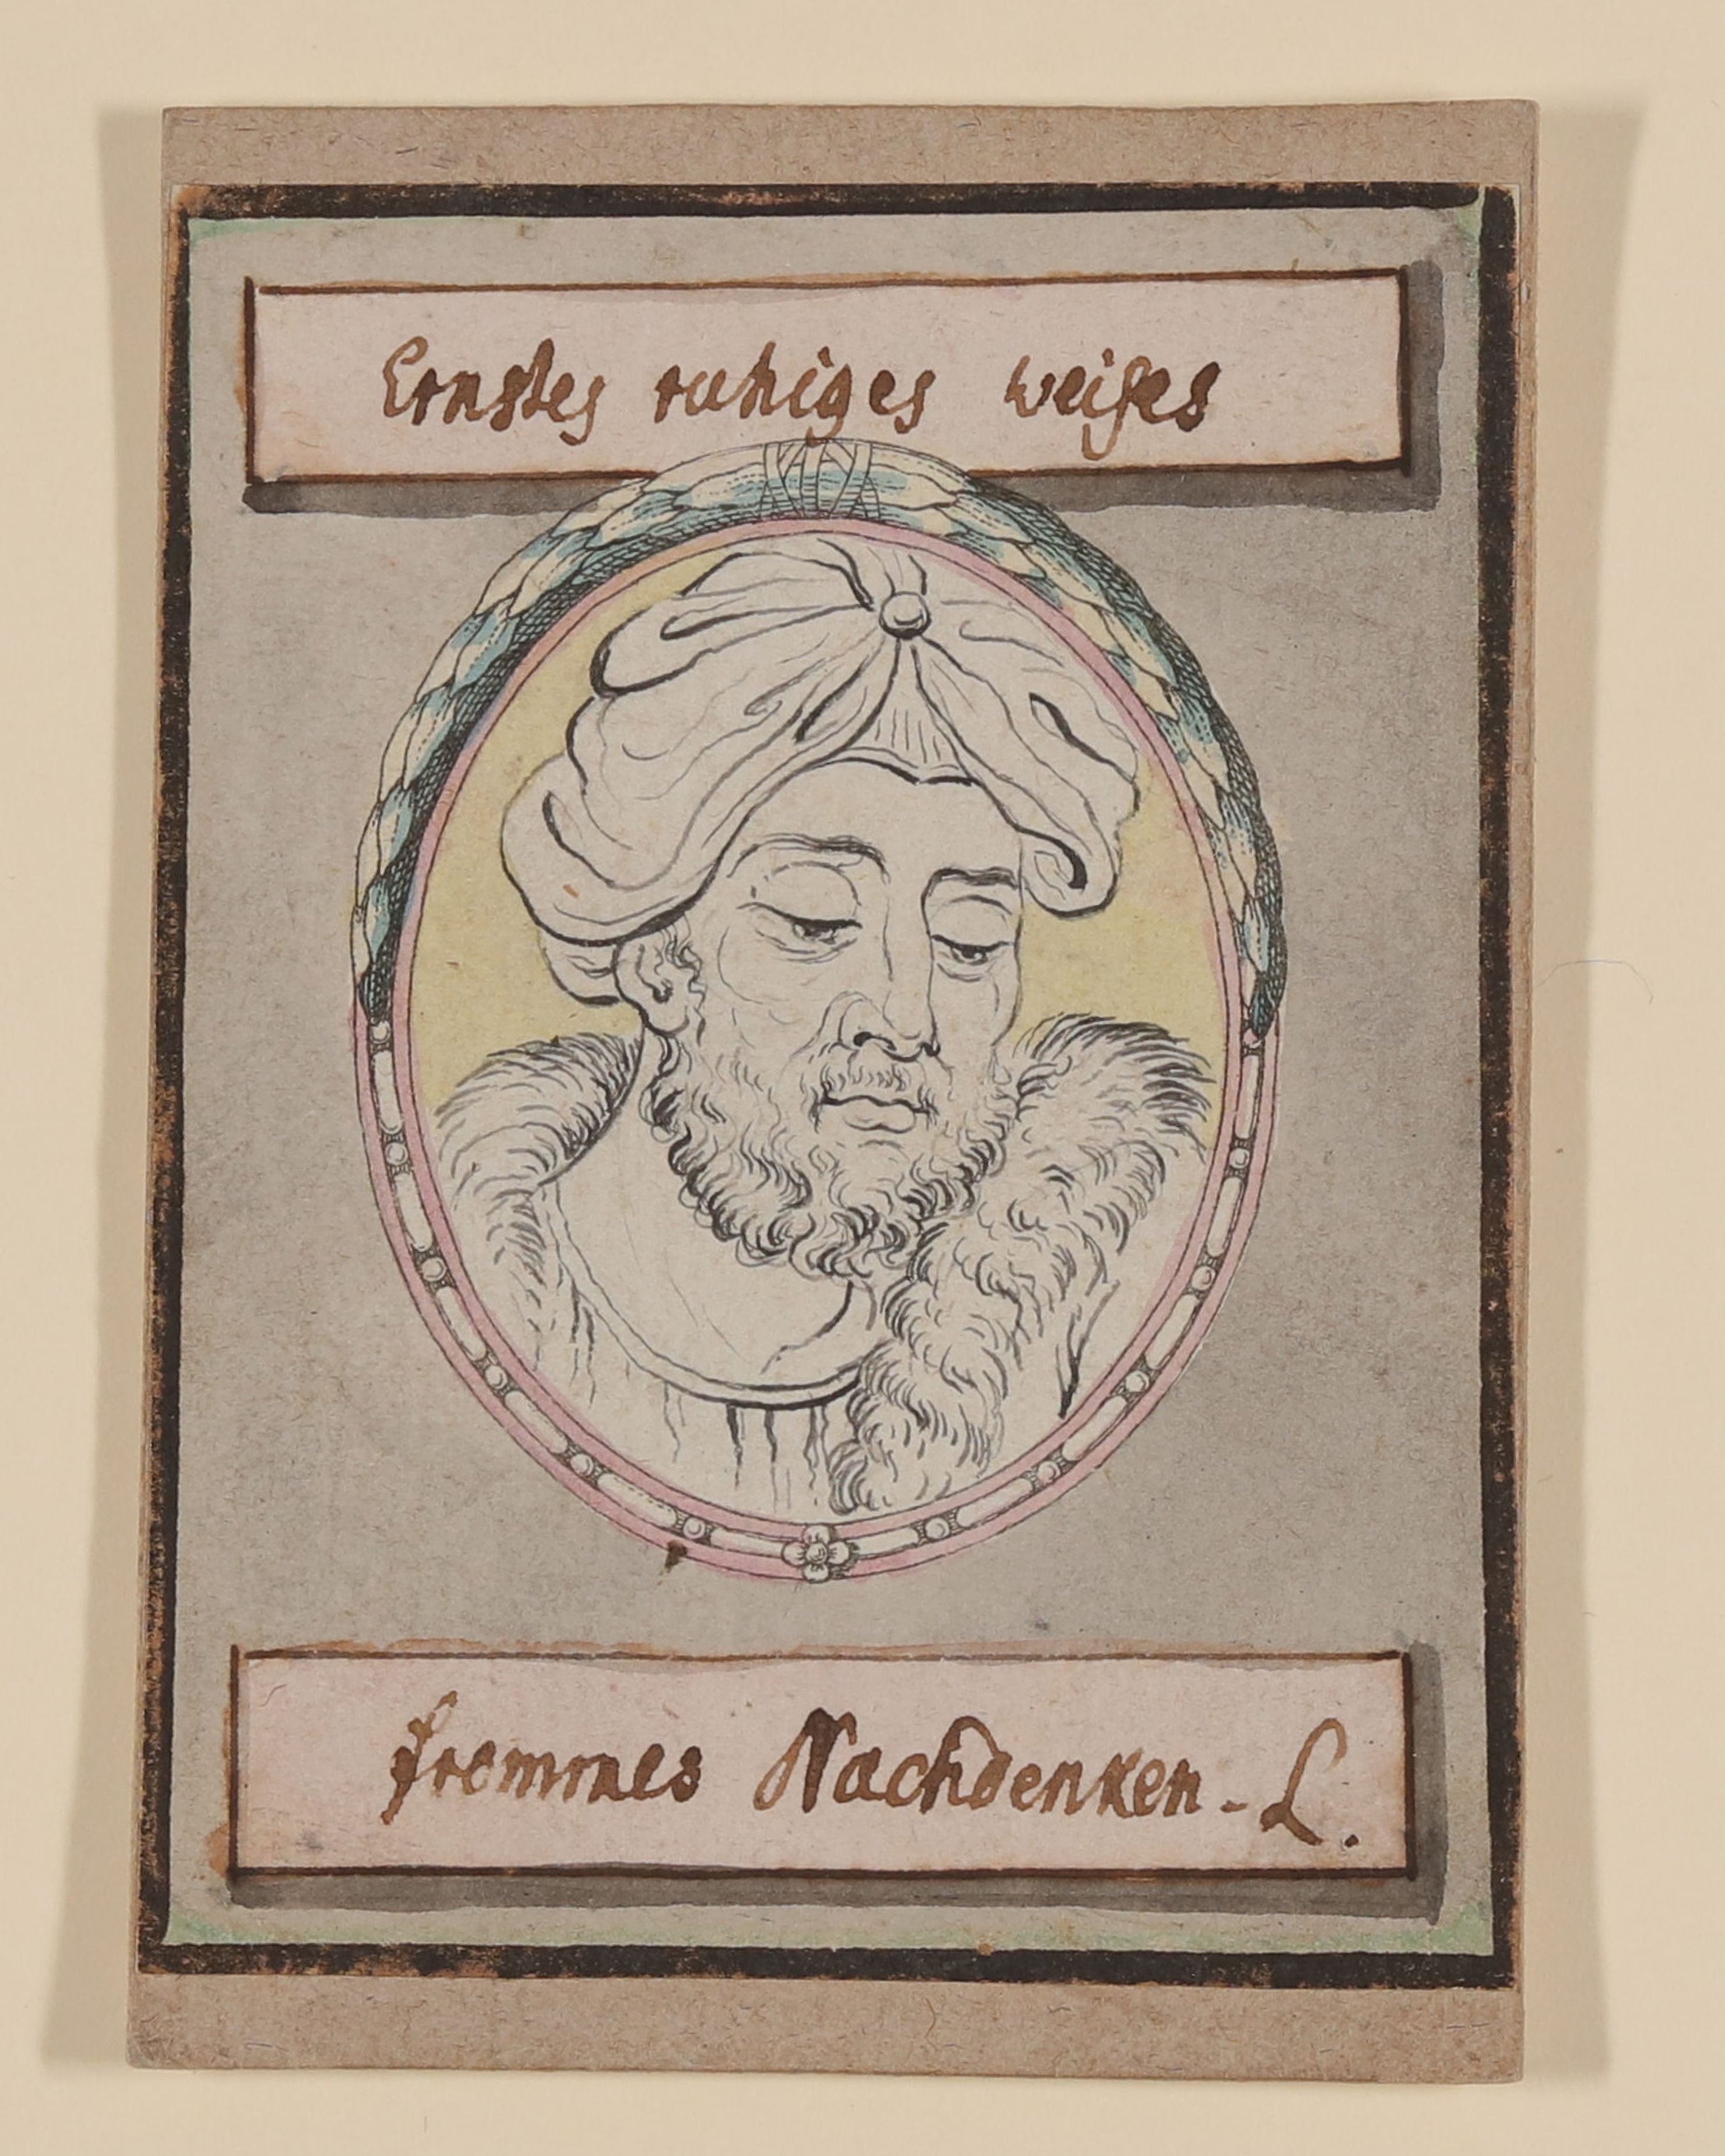 Ernstes ruhiges weises
frommes Nachdenken - L.